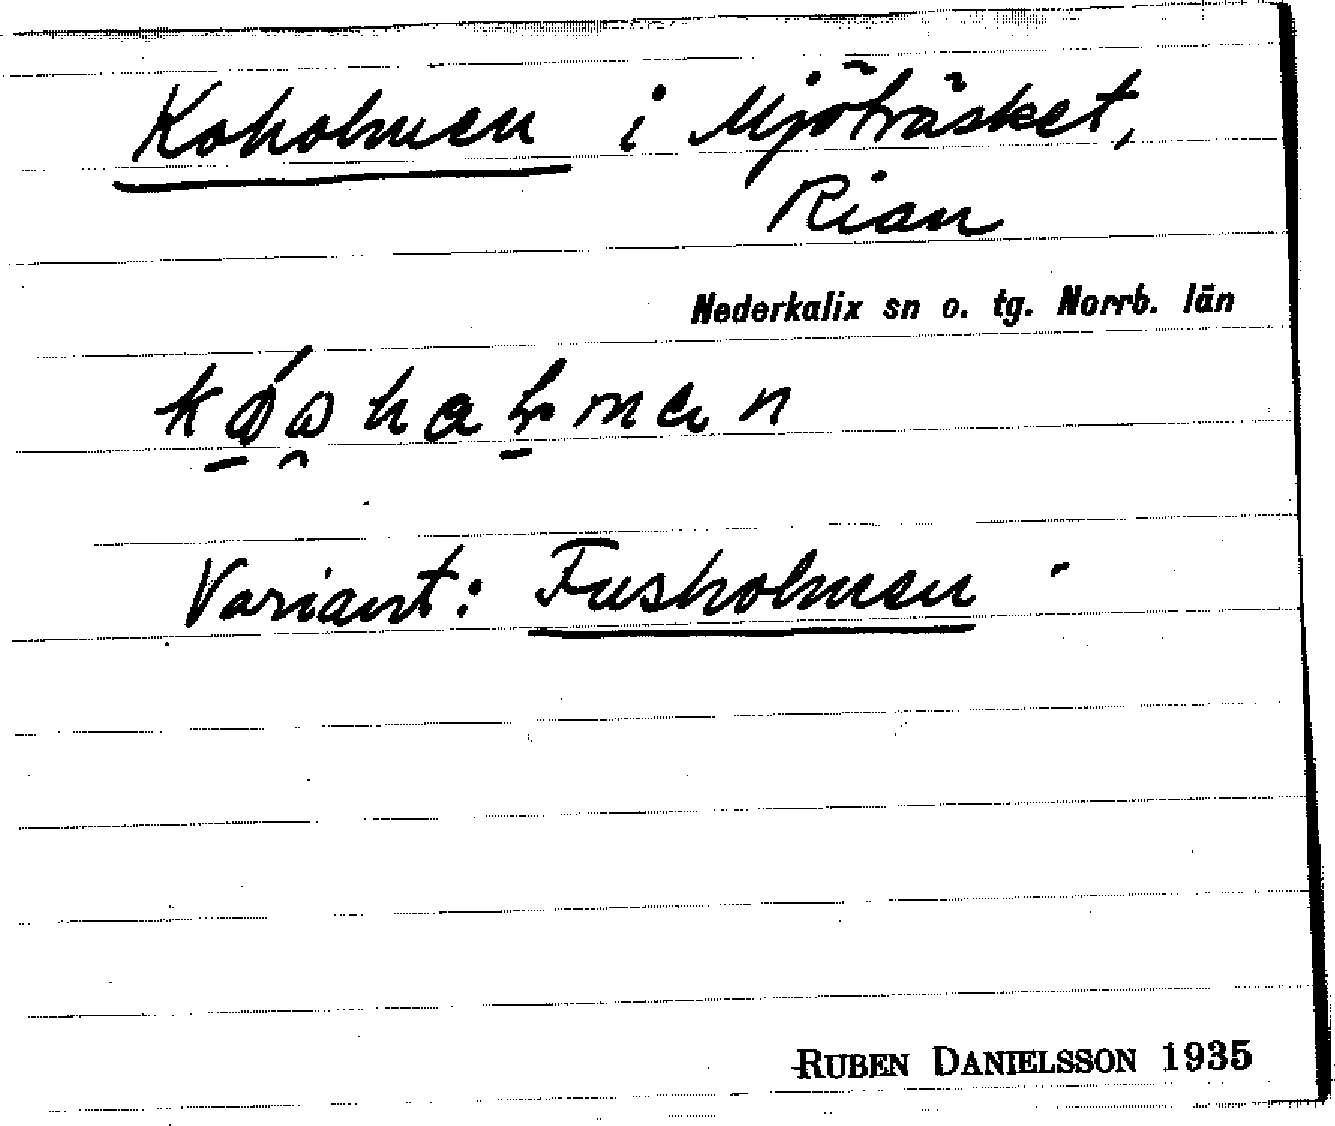 Koholmen i Mjöträsket,
Rian
Nederkalix sn o. tg. Norrb. län
Variant: Fusholmen
RUBEN DANIELSSON 1935